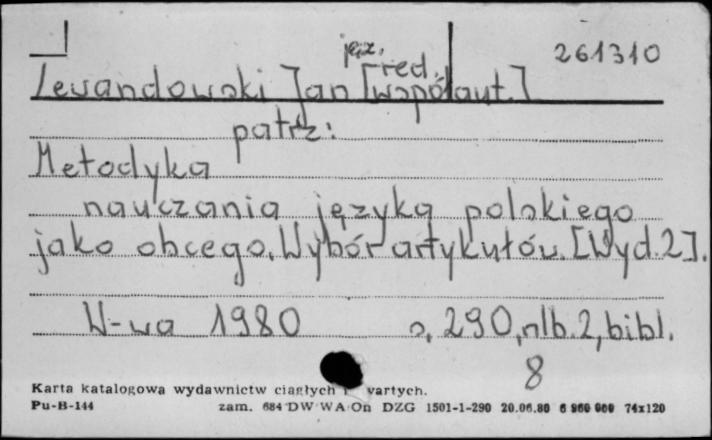 jęz. 261310
Lewandowski Jan [red. współaut.]
patrz:
Metodyka
nauczania języka polskiego
jako obcego. Wybór artykułów. [Wyd. 2].
W-wa 1980 s. 290, nlb. 2, bibl.
8
Karta katalogowa wydawnictw ciągłych i zwartych.
Pu-B-144 zam. 684 DW WA On DZG 1501-1-290 20.06.80 6 960 000 74x120